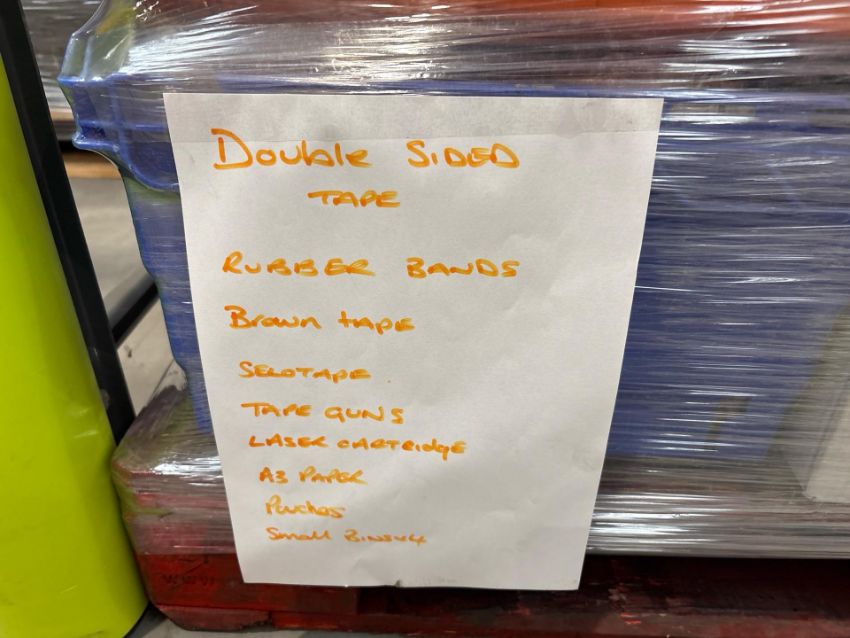 Double SIDED
TAPE
RUBBER BANDS
Brown tape
SELOTAPE
TAPE GUNS
LASER CARTRIdgE
A3 PAPER
Small BINS x4